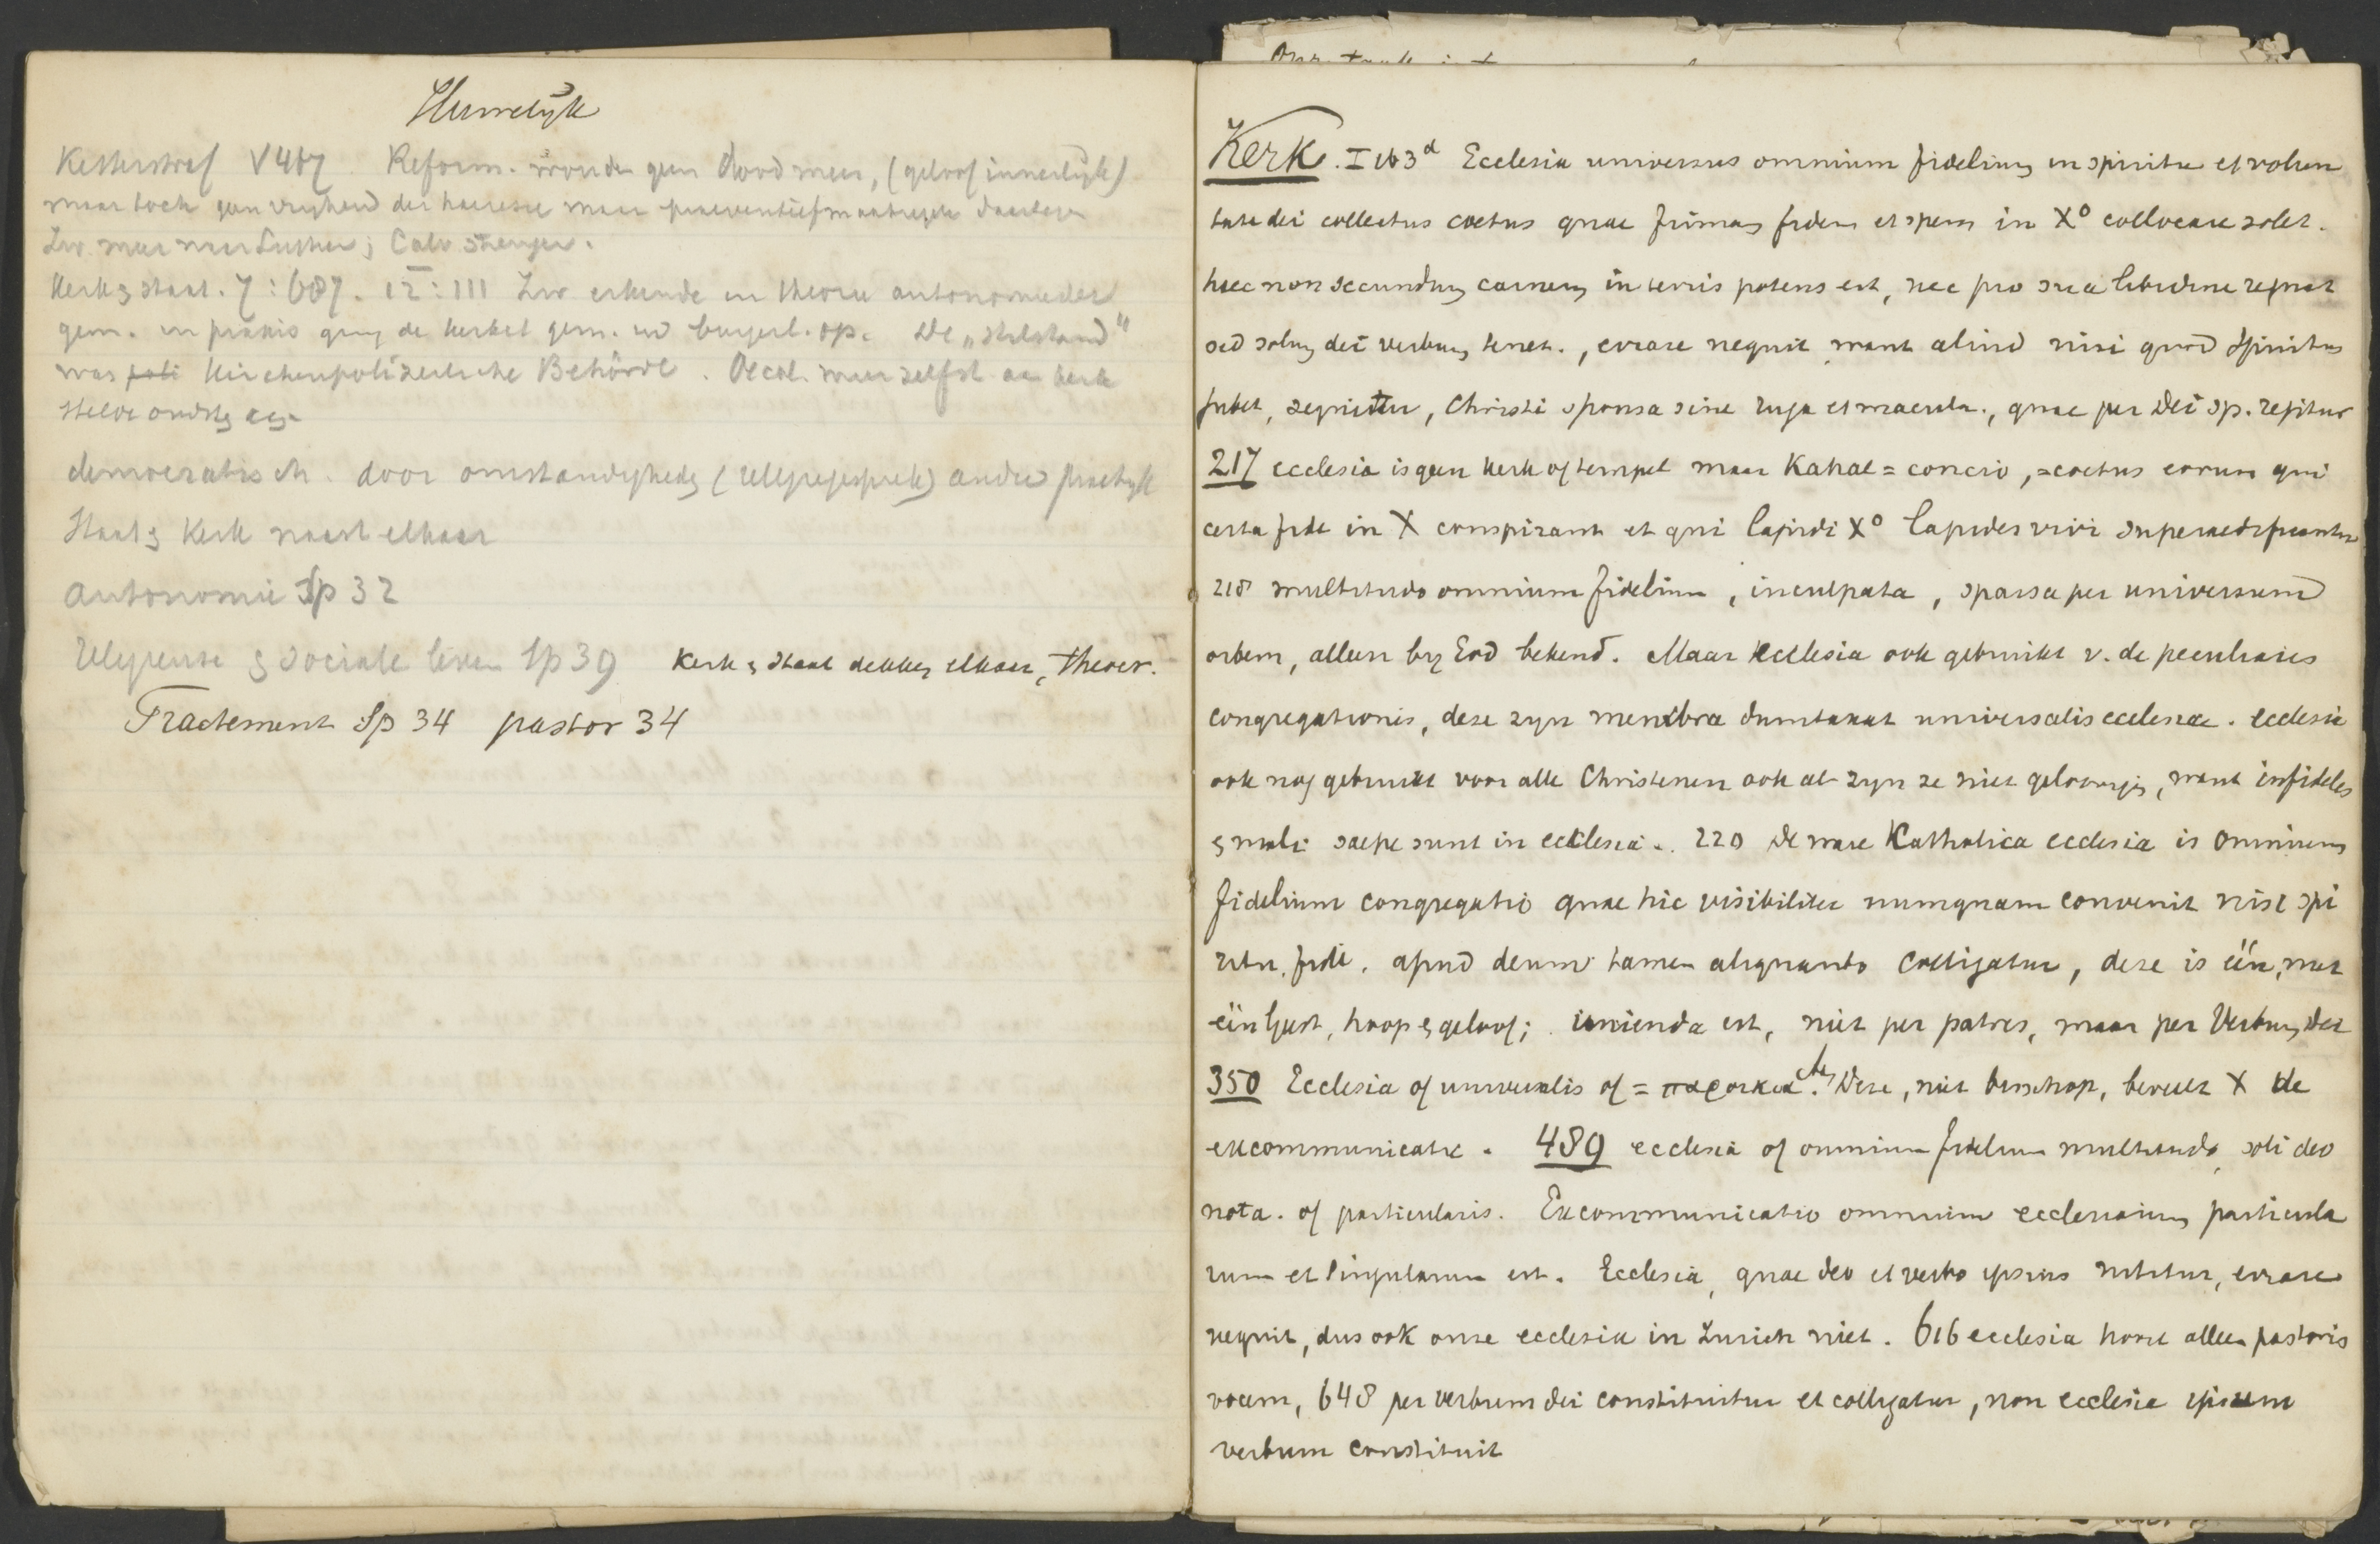 Huwelijk
Ketterstraf V 487 Reform. wonden geen dood meer, (geloof innerlijk)
maar toch geen vrijheid der haeresie maar praeventiefmaatregelen daartegen
Zw. meer naar Luther; Calv strenger.
Kerk en staat. 7 : 687. 12 : 111 Zw erkende in theorie autonomie der
gem. in praxis ging de kerkel gem. in burgerl. op. De „stilstand"
was poli Kirchenpolizeiliche Behörde. Oecol. meer zelfst aan kerk
democratisch. door omstandigheden (religiegesprek) andere practijk
Staat en Kerk naast elkaar
Autonomie Sp 32
Religieuse en sociale leven Sp 39 Kerk en staat dekken elkaar, theor.
Tractement Sp 34 pastor 34
Kerk. I 163d Ecclesia universus omnium fidelium in spiritu et volun
tate dei collectus coetus quae firmam fidem et spem in Xo collocare solet.
haec non secundum carnem in terris potens est, nec pro sua libidine regnat
sed solum dei verbum tenet., errare nequit want aliud nisi quod Spiritus
jubet, sequitur, Christi sponsa sine ruga et macula., quae per Dei sp. regitur
217 ecclesia is geen kerk of tempel maar Kahal = concio, = coetus eorum qui
certa fide in X conspirant et qui lapidi Xo lapides vivi superaedificantur
218 multitudo omnium fidelium, inculpata, sparsa per universum
orbem, alleen bij God bekend. Maar Ecclesia ook gebruikt v. de peculiares
congregationis, deze zijn membra dumtaxat universalis ecclesiae. ecclesia
ook nog gebruikt voor alle Christenen ook al zijn ze niet geloovigen, want infideles
en mali saepe sunt in ecclesia. 220 De ware Katholica ecclesia is omnium
fidelium congregatio quae hic visibiliter numquam convenit nisi spi
ritu, fide. apud deum tamen aliquando colligatur, deze is één, met
één Geest, hoop en geloof; unienda est, niet per patres, maar per Verbum Dei
350 Ecclesia of universalis of = παροικια. Deze, niet bisschop, beveelt X de
excommunicatie. 489 ecclesia of omnium fidelium multitudo, soli deo
nota. of particularis. Excommunicatio omnium ecclesiarum particula
rum et singularum est. Ecclesia, quae deo et verbo ipsius nititur, errare
nequit, dus ook onze ecclesia in Zurich niet. 616 ecclesia hoort alleen pastoris
vocem, 648 per verbum dei constituitur et colligatur, non ecclesia ipsum
verbum constituit